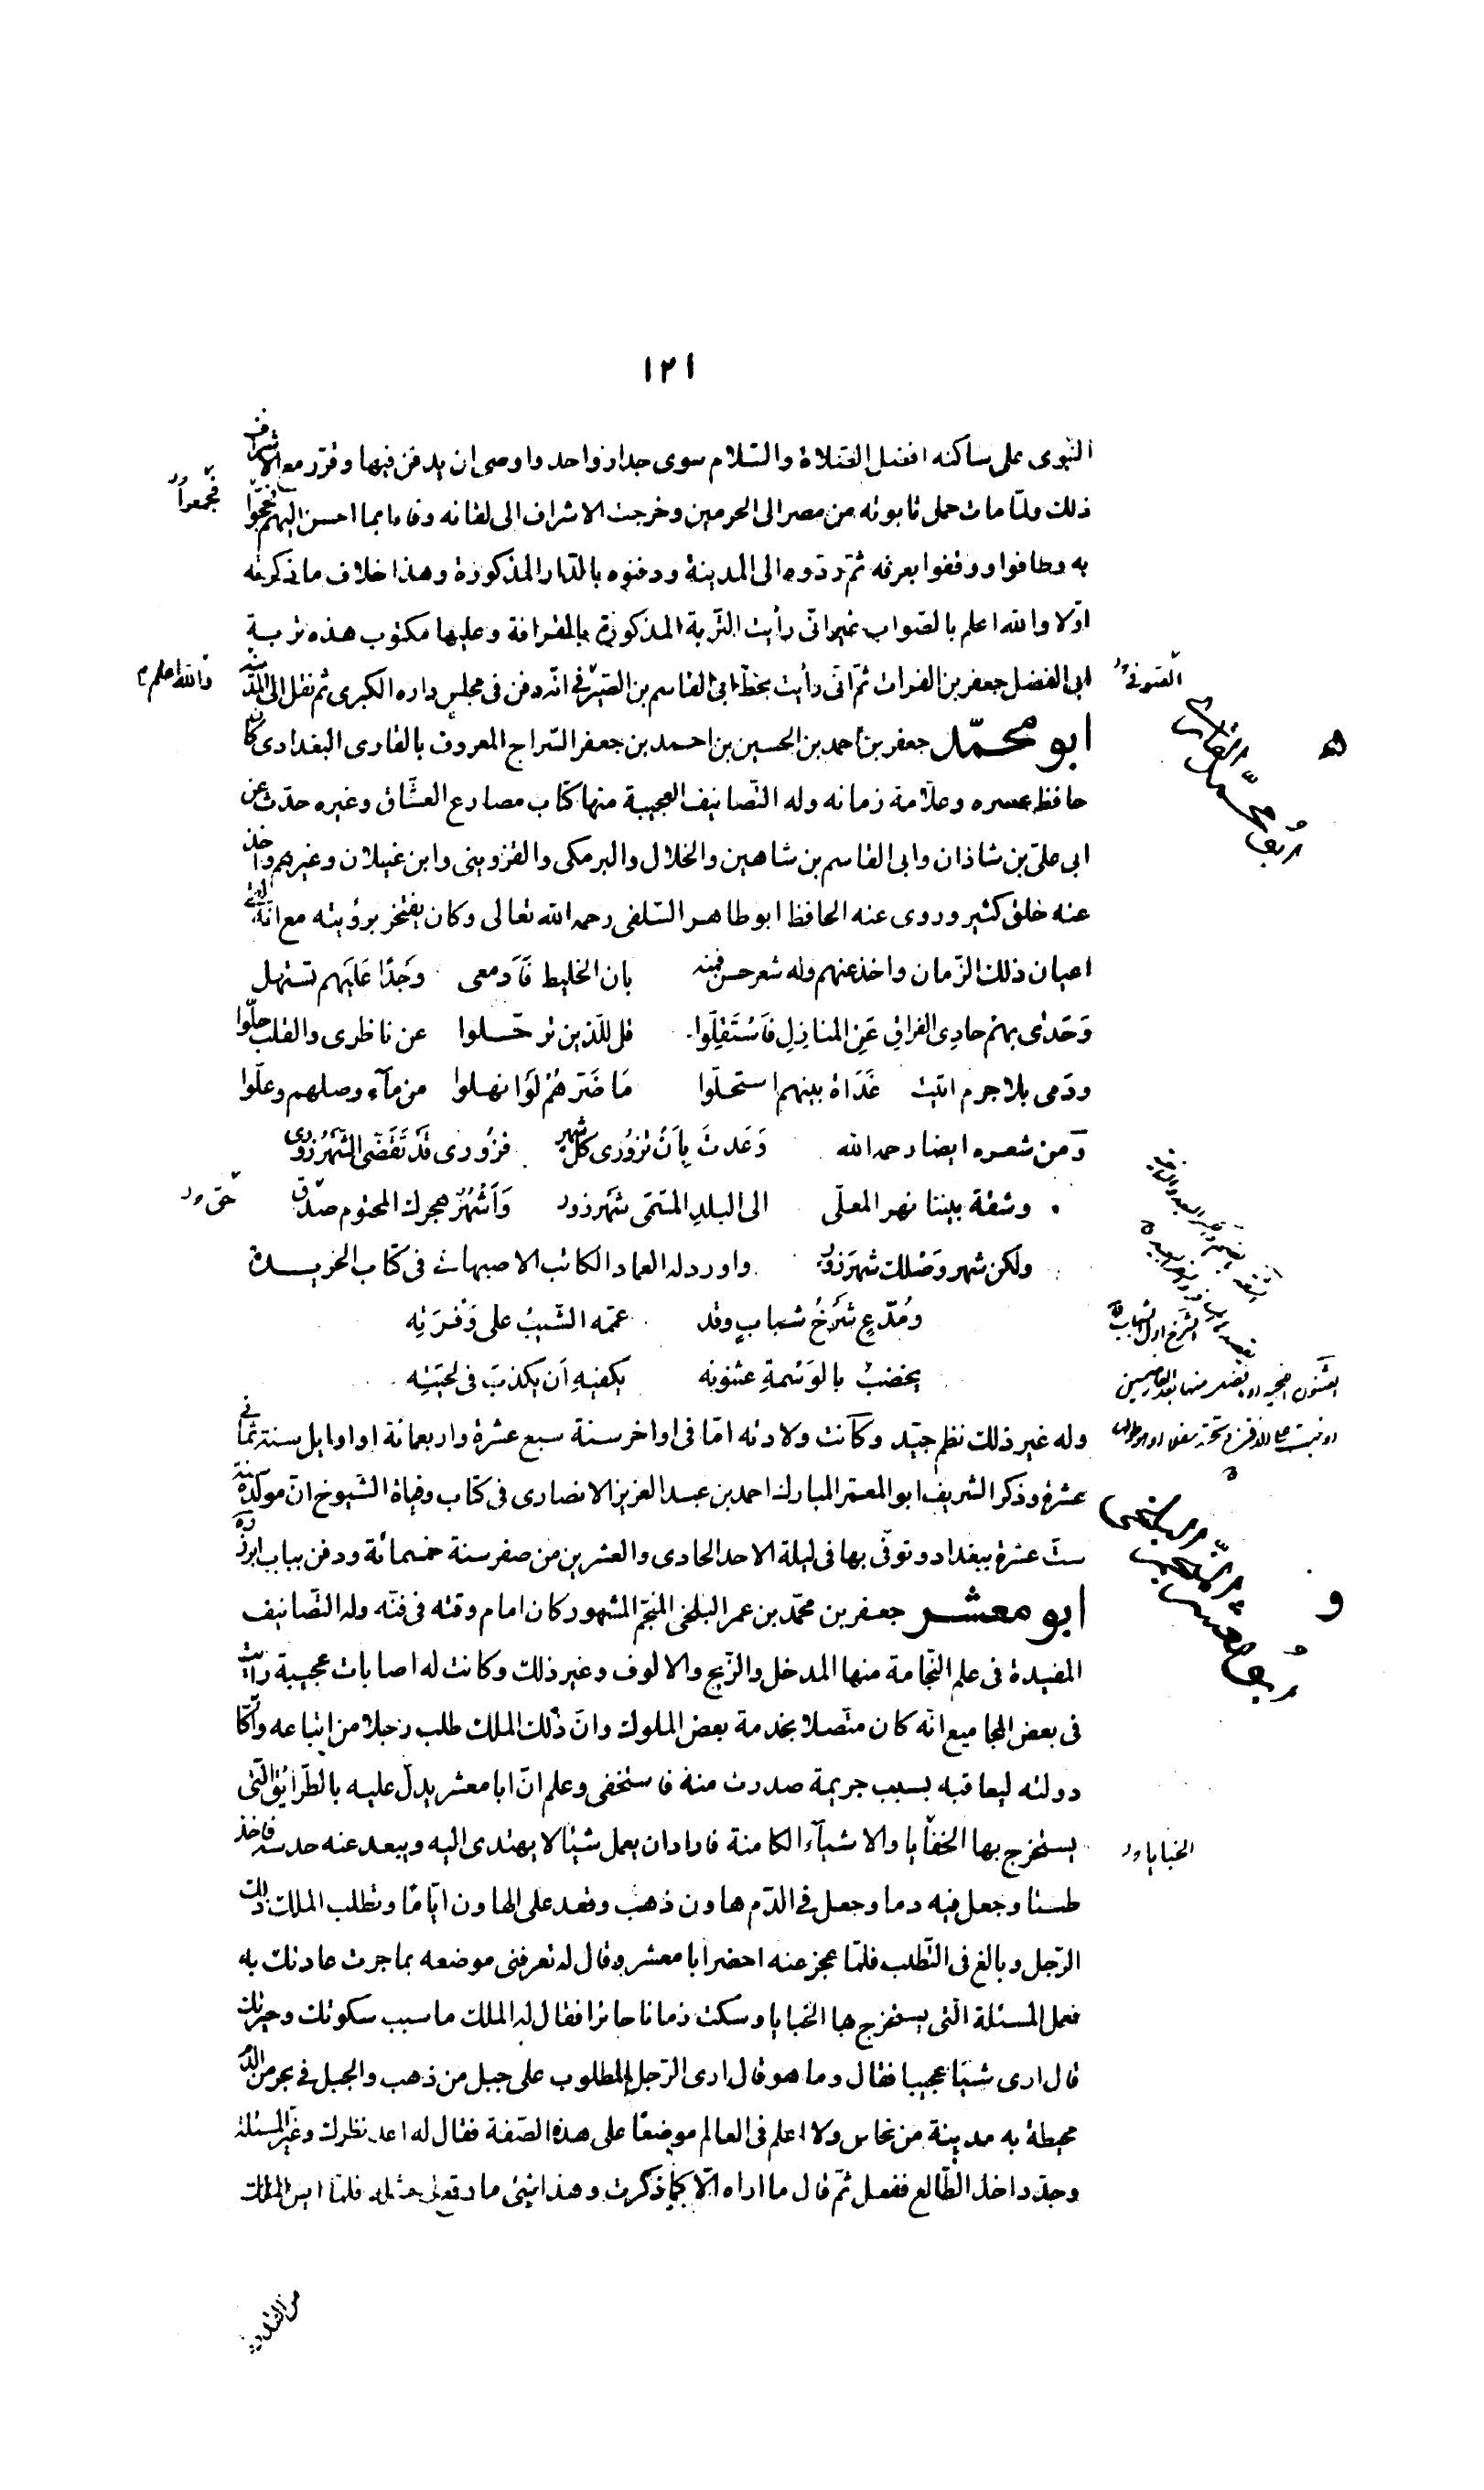 ١٢١
النبوى على ساكنه افضل الصّلاة والسّلام سوى جدار واحد واوصى ان يدفن فيها وقرّر مع الاشراف
ذلك ولمّا مات حمل تابوته من مصر الى الحرمين وخرجت الاشراف الى لقائه وفاءً بما احسن اليهم فحجّوا
به وطافوا ووقفوا بعرفه ثمّ ردّوه الى المدينة ودفنوه بالدّار المذكورة وهذا خلاف ما ذكرته
اوّلا والله اعلم بالصّواب غير انّى رأيت التّربة المذكورة بالقرافة وعليها مكتوب هذه تربة
ابى الفضل جعفر بن الفرات ثمّ انّى رأيت بخطّ ابى القاسم بن الصّيرفى انّه دفن فى مجلس داره الكبرى ثم نقل الى المدينة
والله اعلم
ابو محمّد جعفر بن احمد بن الحسين بن احمد بن جعفر السّراج المعروف بالقارى البغدادى كان
حافظ عصره وعلّامة زمانه وله التّصانيف العجيبة منها كتاب مصارع العشّاق وغيره حدّث عن
ابى علىّ بن شاذان وابى القاسم بن شاهين والخلال والبرمكى والقزوينى وابن غيلان وغيرهم واخذ
عنه خلق كثير وروى عنه الحافظ ابو طاهر السّلفى رحمه الله تعالى وكان يفتخر برؤيته مع انّه لقى
اعيان ذلك الزّمان واخذ عنهم وله شعر حسن فمنه بان الخليط فَادمعى وَجْدًا عَلَيهم تستهل
وَحَدٰى بهم حادِى الفراقِ عَنِ المنازِلِ فَاسْتَقلّوا قل للّذين ترحّلوا عن ناظرى والقلب حلّوا
ودمى بلا جرم اتيت غَدَاة بينهم استحلّوا مَا ضَرّهُمْ لَوْ انهلوا من مآء وصلهم وعلّوا
وَمن شعره ايضا رحمه الله وَعَدتَ بِاَنْ تزُوُرى كلّ شهر فزُورى قَدْ تَقَضّى الشّهْرُ زُورى
وشقة بيننا نهر المعلّى الى البلدِ المسَمّى شَهْرزور وَاَشْهُرُ هجرك المحتوم صدق
ولكن شهر وَصْلك شَهرَزور واورد له العماد الكاتب الاصبهانى فى كتاب الخريدة
ومُدّعٍ شرْخُ شباب وقد عمّه الشّيبُ على وَفْرَتِه
يخضبُ بالوَسْمةِ عثنونه يكفيهِ اَن يكذبَ فى لحيَتِه
وله غير ذلك نظم جيّد وكانت ولادته امّا فى اواخر سنة سبع عشرة واربعمائة او اوايل سنة ثمانى
عشرة وذكر الشريف ابو المعمّر المبارك احمد بن عبد العزيز الانصارى فى كتاب وفياة الشيوخ انّ مولده سنة
ستّ عشرة ببغداد وتوفّى بها فى ليلة الاحد الحادى والعشرين من صفر سنة خمسمائة ودفن بباب ابرز
ابو معشر جعفر بن محمّد بن عمر البلخى المنجّم المشهور كان امام وقته فى فنّه وله التّصانيف
المفيدة فى علم النّجامة منها المدخل والزّيج والالوف وغير ذلك وكانت له اصابات عجيبة رايت
فى بعض المجاميع انّه كان متّصلا بخدمة بعض الملوك وانّ ذلك الملك طلب رجلا من اتباعه واكابر
دولته ليعاقبه بسبب جريمة صدرت منه فاستخفى وعلم انّ ابا معشر يدلّ عليه بالطّرائق الّتى
يستخرج بها الخفايا والاشيآء الكامنة فاراد ان يعمل شيئا لا يهتدى اليه ويبعد عنه حدسه فاخذ
الخبايا
طستا وجعل فيه دما وجعل فى الدّم هاون ذهب وقعد على الهاون ايّامًا وتطلب الملك ذلك
الرّجل وبالغ فى التّطلب فلمّا عجز عنه احضر ابا معشر وقال له تعرفنى موضعه بما جرت عادتك به
فعمل المسئلة الّتى يستخرج بها الخبايا وسكت زمانا حائرا فقال له الملك ما سبب سكوتك وحيرتك
قال ارى شيئا عجيبا فقال وما هو قال ارى الرّجل المطلوب على جبل من ذهب والجبل فى بحر من الدّم
محيطة به مدينة من نحاس ولا اعلم فى العالم موضعًا على هذه الصّفة فقال له اعد نظرك وغيّر المسئلة
وجدّد اخذ الطّالع ففعل ثمّ قال ما اراه الّا كما ذكرت وهذا شئ ما وقع لى مثله فلمّا ايس الملك